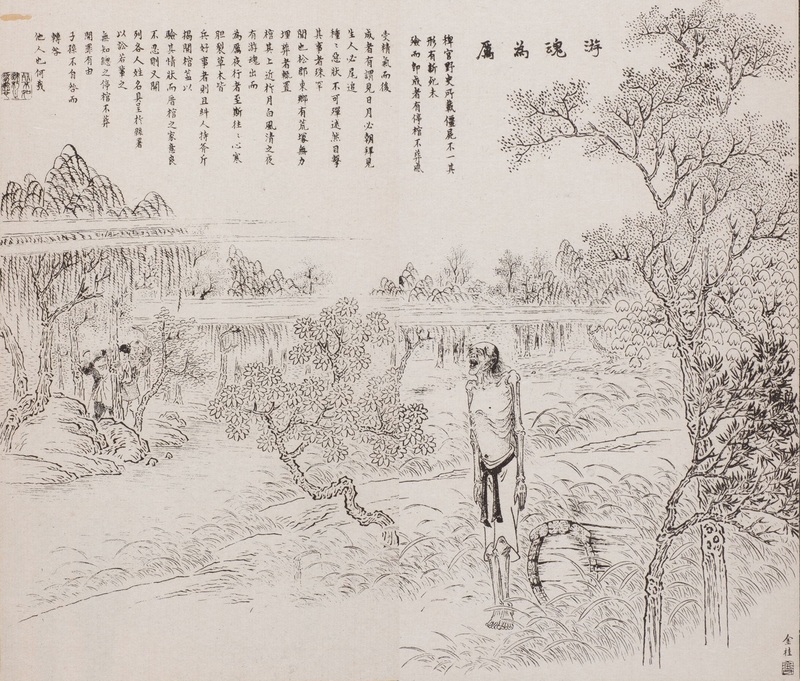 游魂為厲
稗官野史所載僵尸不一其
形有斃死未
殮而卽成者有停棺不葬感
受精氣而後
成者有謂見日月必朝拜見
生人必尾追
種種惡狀不可殫述然目擊
其事者殊罕
聞也松郡東鄉有荒塚無力
埋葬者輒置
棺其上近於月白風清之夜
有游魂出而
為厲夜行者至斷往往心寒
胆裂草木皆
兵好事者則且糾人持斧斤
揭開棺蓋以
驗其情狀而厝棺之家意良
不忍則又開
列各人姓名具呈於縣署
以訟若輩之
無知總之停棺不葬
開罪有由
子孫不自咎而
轉咎
他人也何哉
金桂